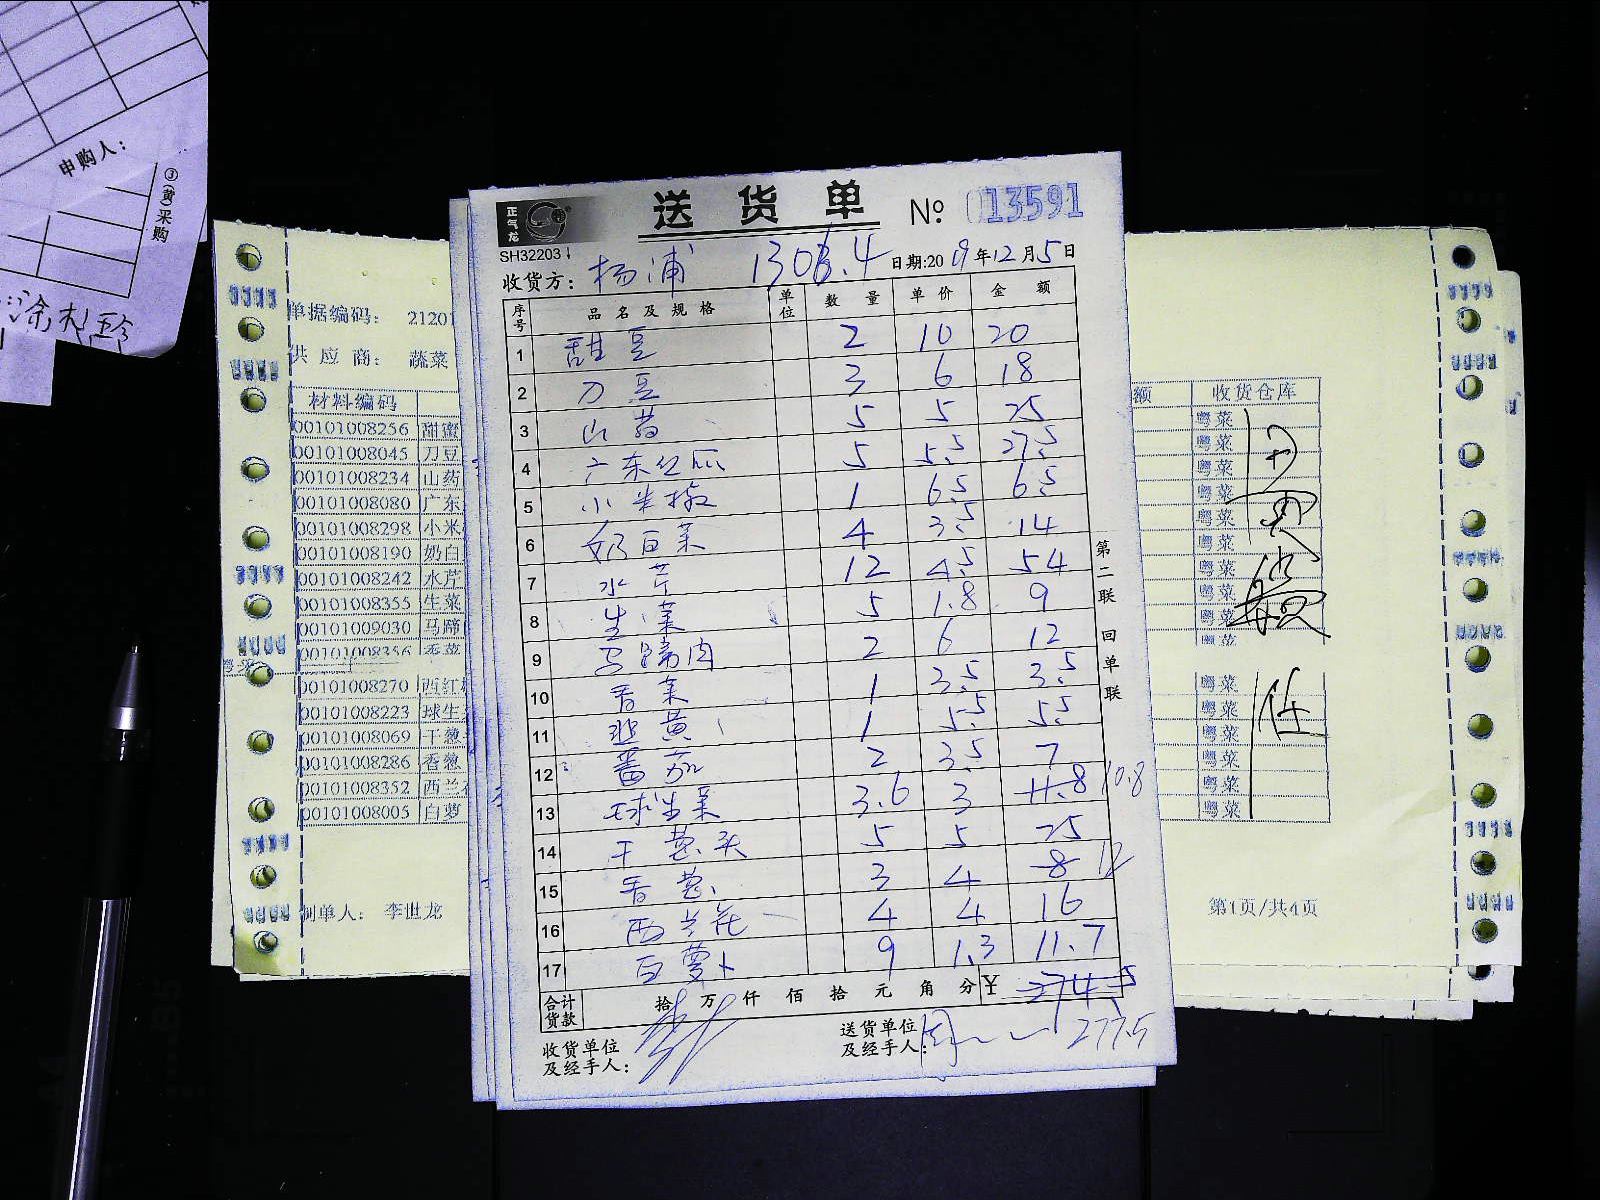 申购人:
③(黄)采购
正气龙
送货单 № 013591
SH32203
收货方: 杨浦 1306.4 日期:2019年12月5日
序号 品名及规格 单位 数量 单价 金额
1 甜豆 2 10 20
2 刀豆 3 6 18
3 山药 5 5 25
4 广东红瓜 5 5.5 27.5
5 小米椒 1 6.5 6.5
6 奶白菜 4 3.5 14
7 水芹 12 4.5 54
8 生菜 5 1.8 9
9 马蹄肉 2 6 12
10 香菜 1 3.5 3.5
11 韭黄 1 5.5 5.5
12 番茄 2 3.5 7
13 球生菜 3.6 3 11.8 10.8
14 干葱头 5 5 25
15 香葱 3 4 8 12
16 西兰花 4 4 16
17 白萝卜 9 1.3 11.7
合计货款 拾 万 仟 佰 拾 元 角 分 ¥ 274.5
277.5
收货单位及经手人:
送货单位及经手人:
第二联 回单联
单据编码: 21201
供应商: 蔬菜
材料编码
00101008256 甜蜜
00101008045 刀豆
00101008234 山药
00101008080 广东
00101008298 小米
00101008190 奶白
00101008242 水芹
00101008355 生菜
00101009030 马蹄
00101008356 香菜
00101008270 西红
00101008223 球生
00101008069 干葱
00101008286 香葱
00101008352 西兰
00101008005 白萝
制单人: 李世龙
额 收货仓库
粤菜
粤菜
粤菜
粤菜
粤菜
粤菜
粤菜
粤菜
粤菜
粤菜
粤菜
粤菜
粤菜
粤菜
粤菜
粤菜
第1页/共4页